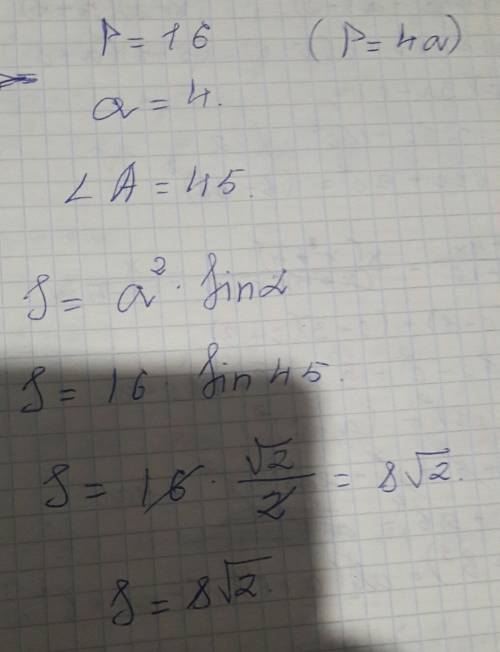 P = 16 (P = 4a)
a = 4.
∠A = 45.
S = a² · sin α
S = 16 sin 45.
S = 16 · √2/2 = 8√2.
S = 8√2.